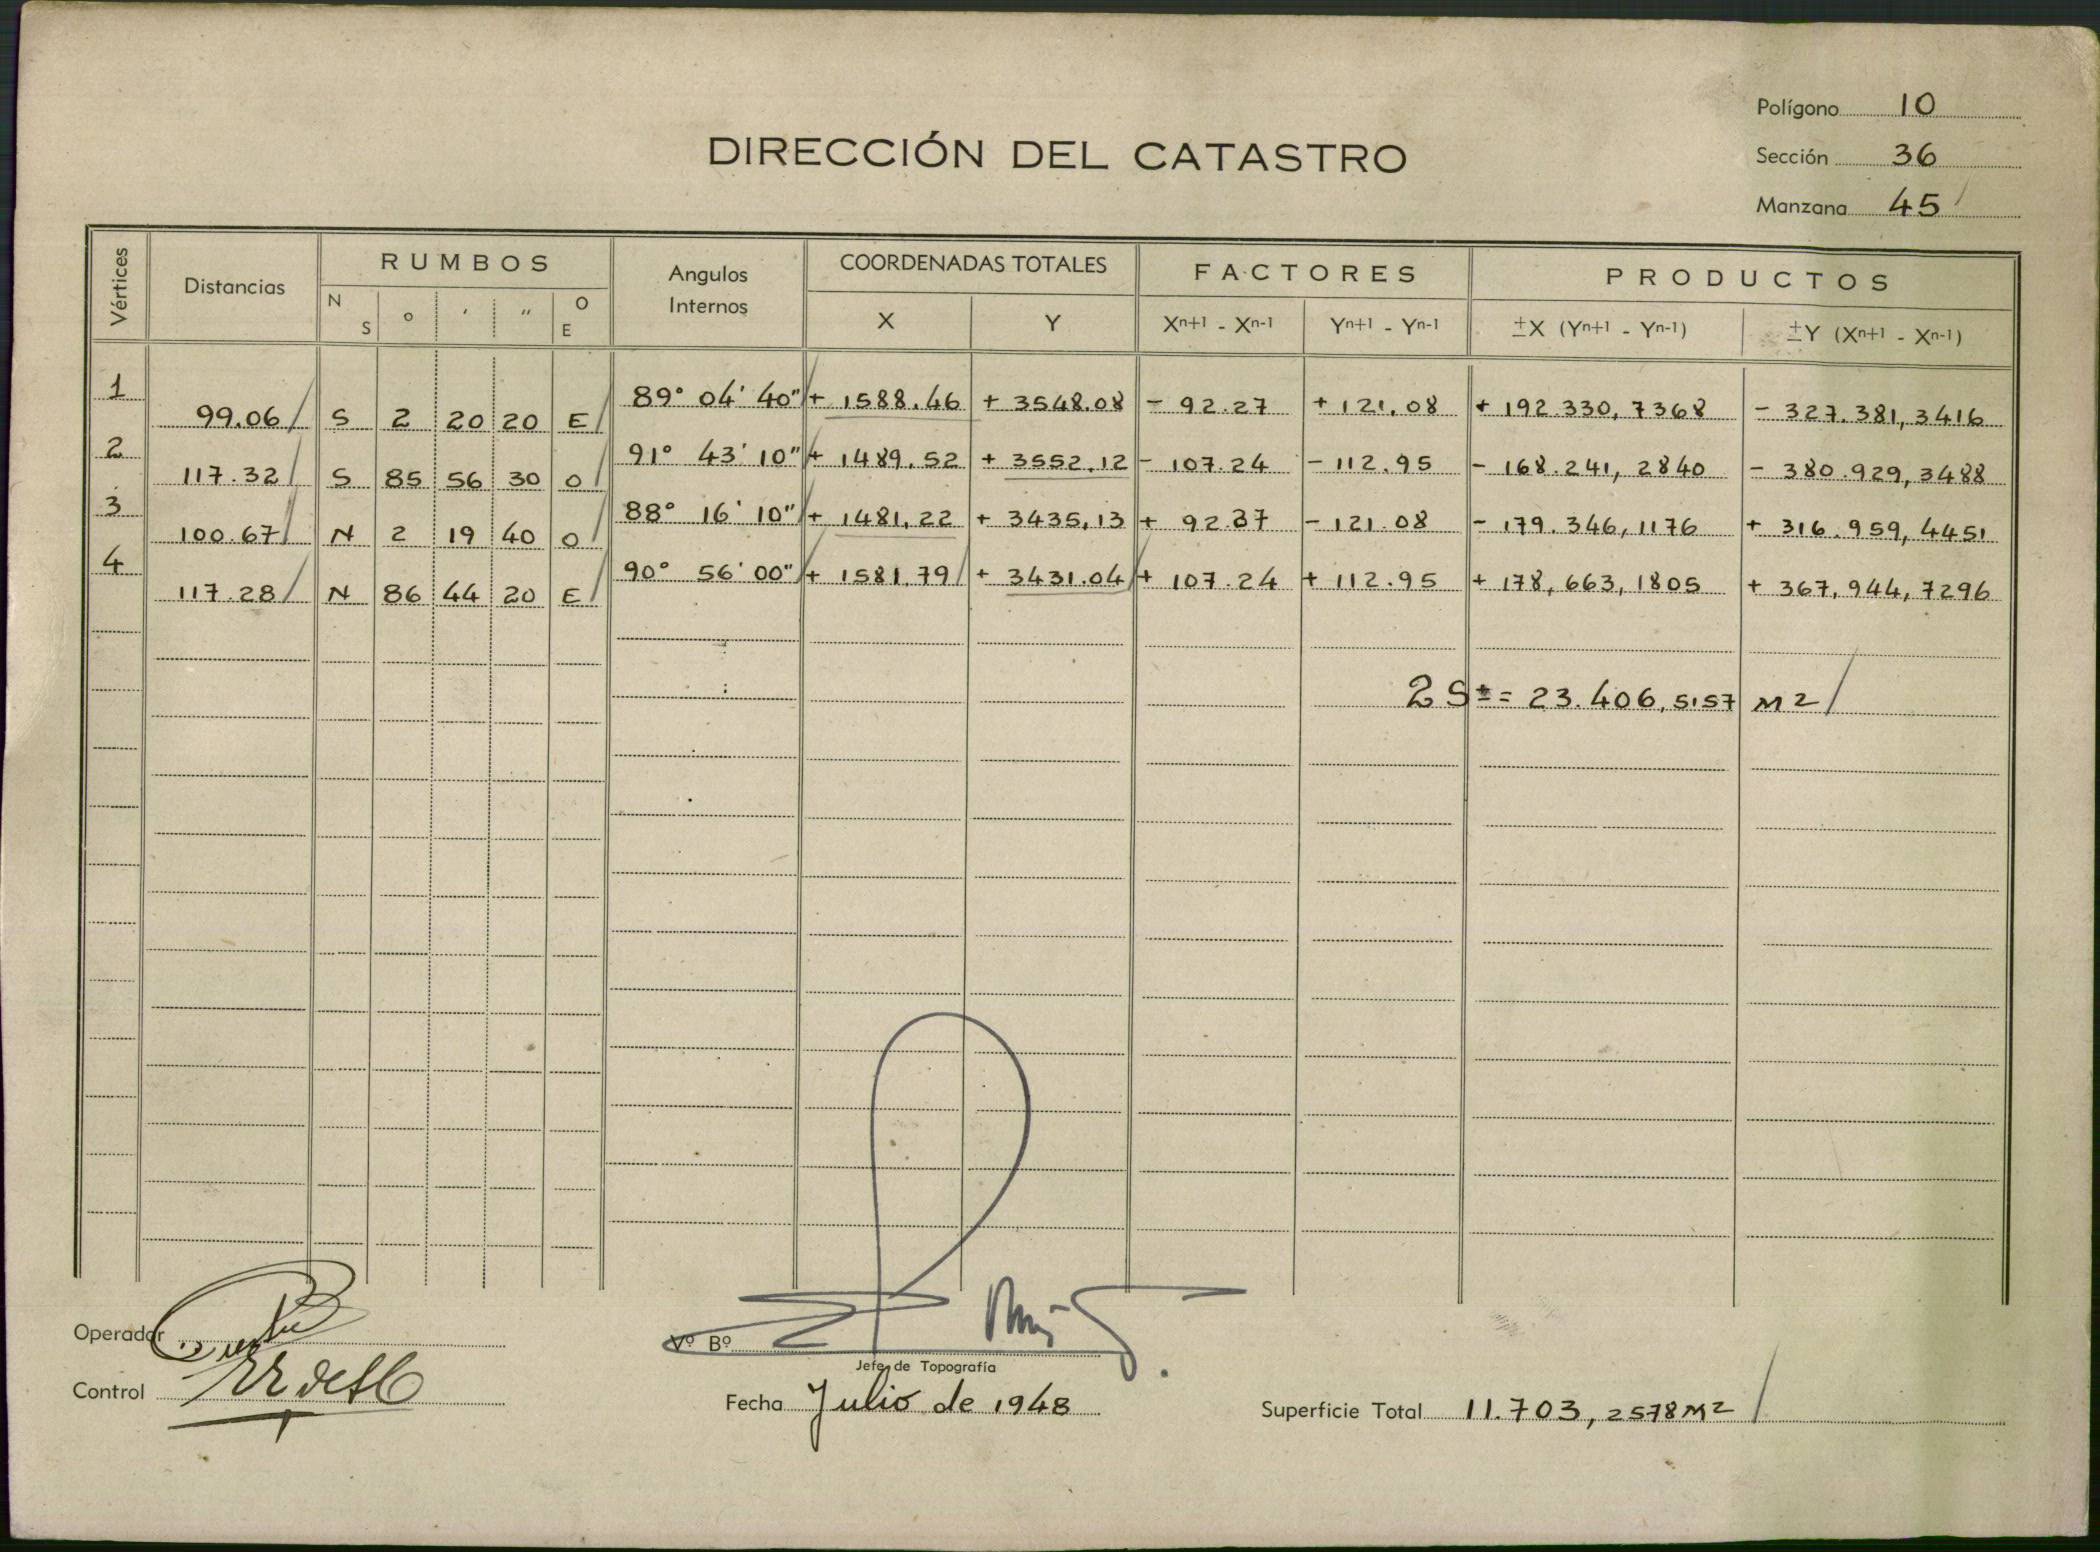 Polígono 10
DIRECCIÓN DEL CATASTRO
Sección 36
Manzana 45
Vértices Distancias RUMBOS Angulos Internos COORDENADAS TOTALES FACTORES PRODUCTOS
N S ° ′ ″ O E X Y Xn+1 - Xn-1 Yn+1 - Yn-1 ±X (Yn+1 - Yn-1) ±Y (Xn+1 - Xn-1)
1 89° 04' 40" + 1588.46 + 3548.08 - 92.27 + 121.08 + 192.330,7368 - 327.381,3416
99.06 S 2 20 20 E
2 91° 43' 10" + 1489.52 + 3552.12 - 107.24 - 112.95 - 168.241,2840 - 380.929,3488
117.32 S 85 56 30 O
3 88° 16' 10" + 1481,22 + 3435,13 + 92.27 - 121.08 - 179.346,1176 + 316.959,4451
100.67 N 2 19 40 O
4 90° 56' 00" + 1581.79 + 3431.04 + 107.24 + 112.95 + 178,663,1805 + 367,944,7296
117.28 N 86 44 20 E
2 S ± = 23.406,5157 M2
Operador
Vº Bº
Jefe de Topografía
Control
Fecha Julio de 1948
Superficie Total 11.703,2578 M2